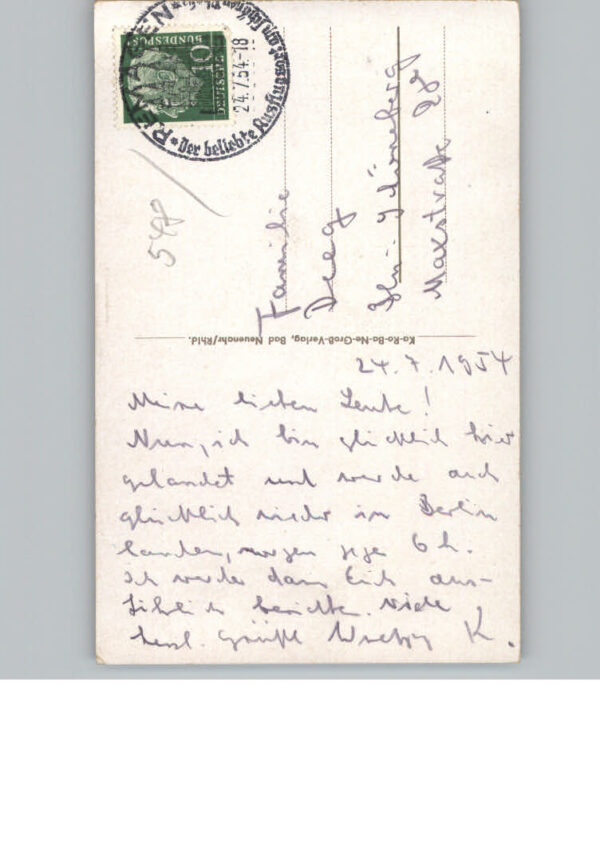 REMAGEN
Der beliebte Ausflugsort
24.7.54-18
DEUTSCHE
BUNDESPOST
10
548
Familie
Deeg
Bln.-Schöneberg
Maxstraße 28
Ka-Ro-Ba-Ne-Groß-Verlag, Bad Neuenahr/Rhld.
24.7.1954
Meine lieben Leute!
Nun, ich bin glücklich hier
gelandet und werde auch
glücklich wieder in Berlin
landen, morgen gege 6 h.
Ich werde dann Euch aus-
führlich berichten. Viele
herzl. Grüße K.